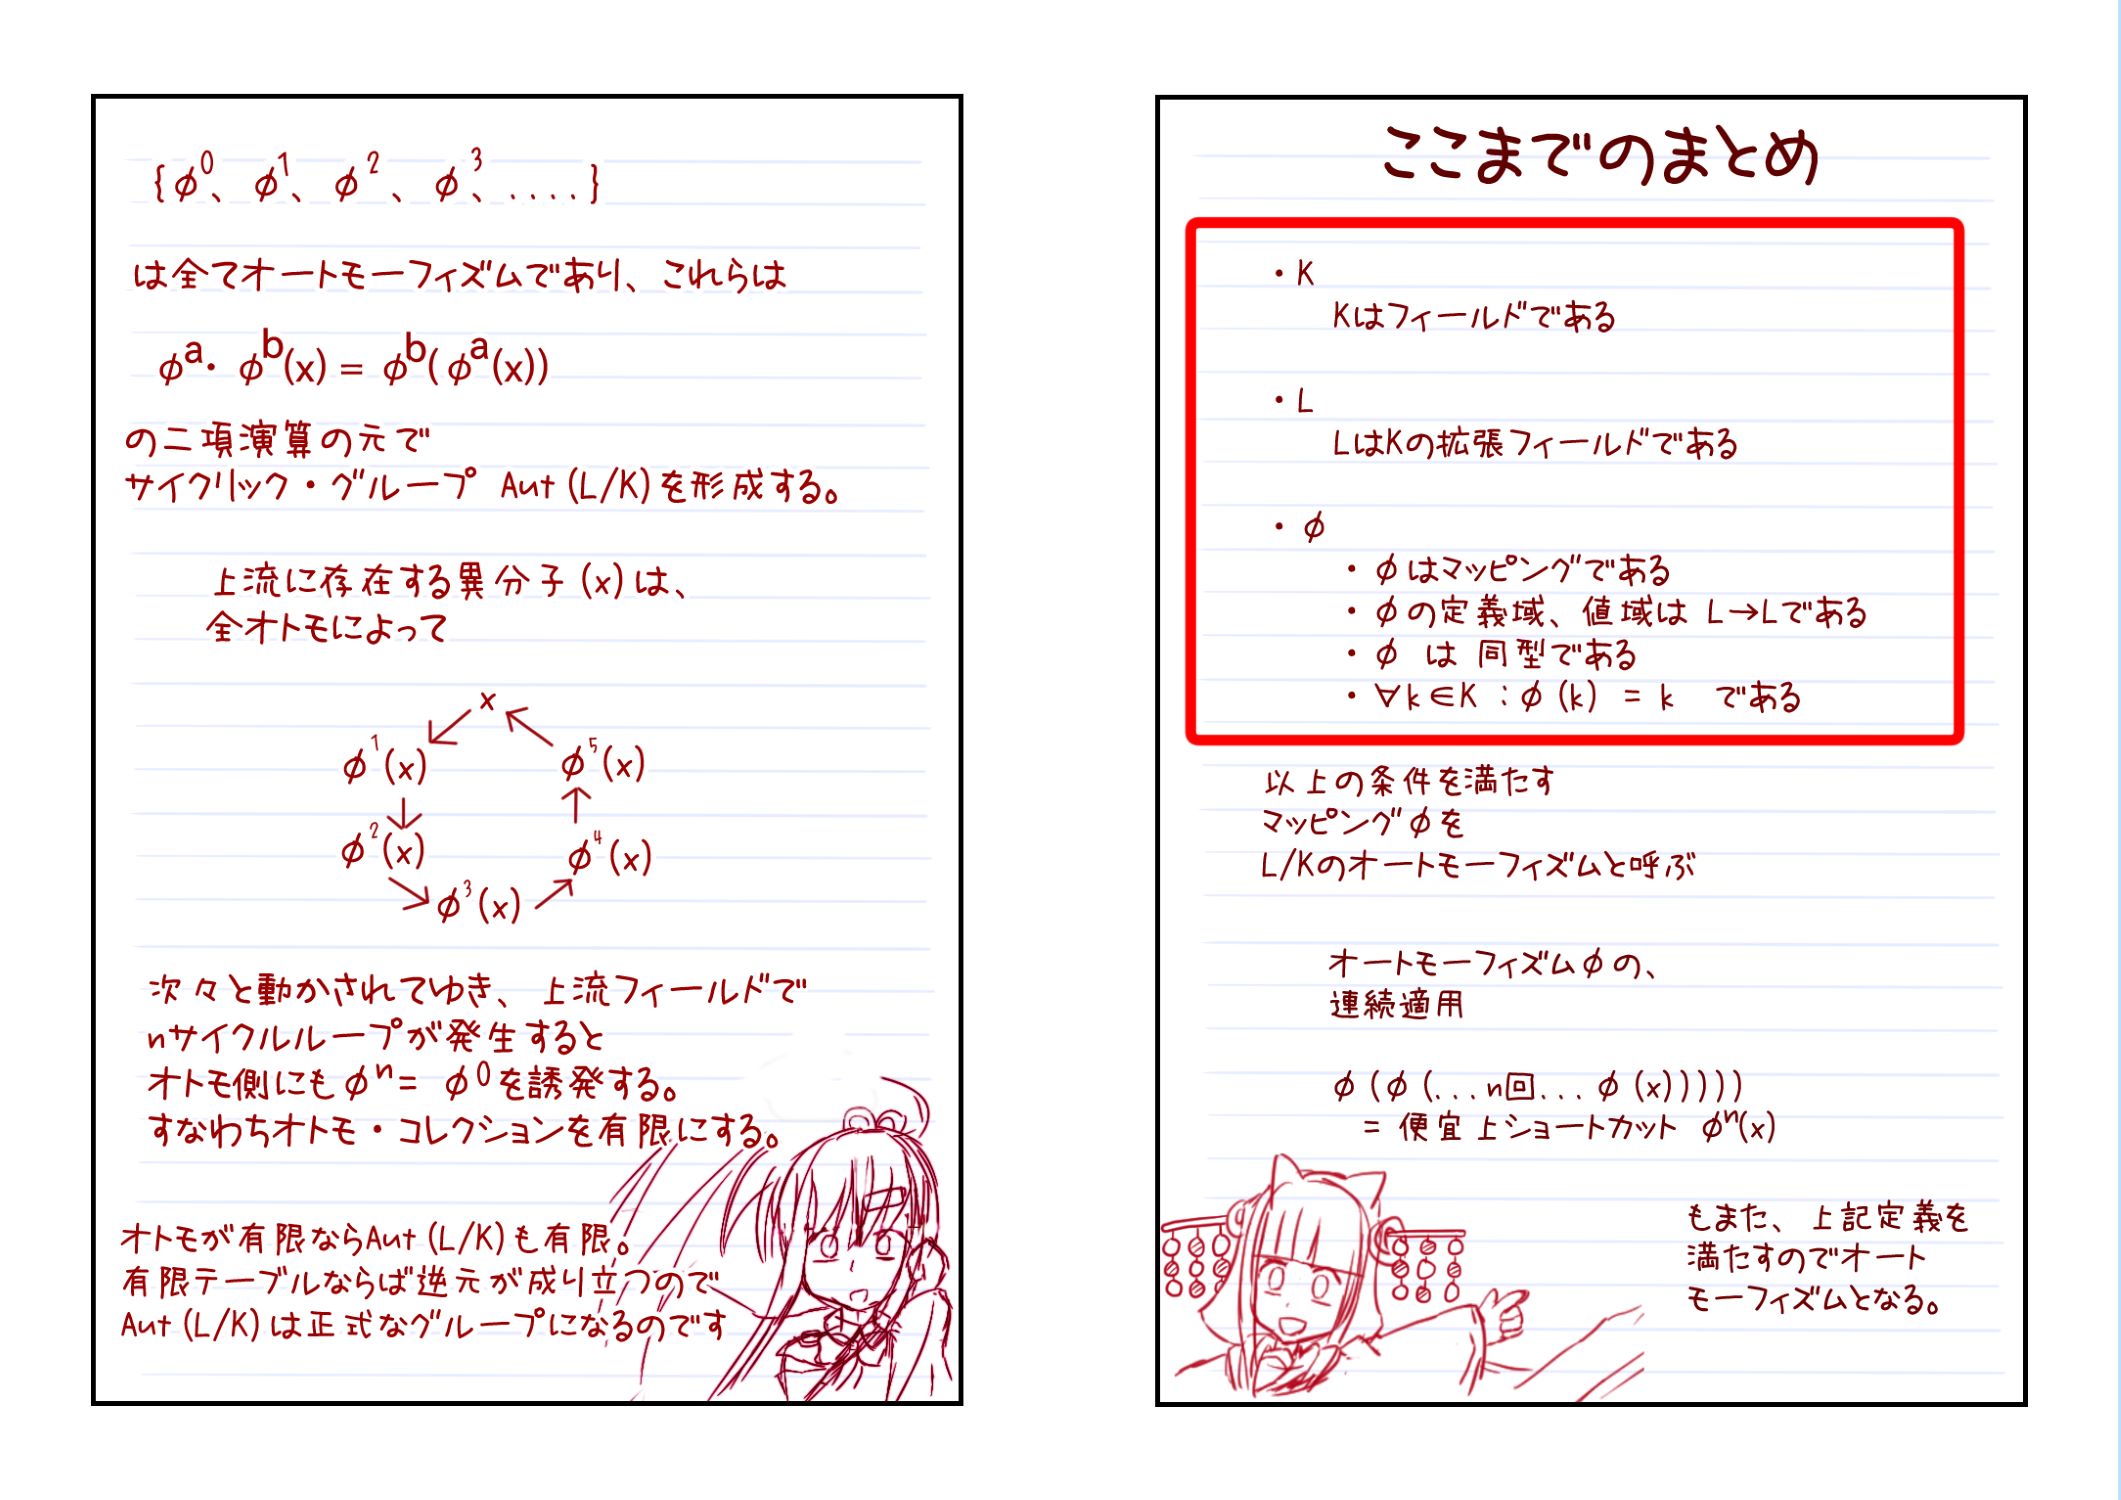 ここまでのまとめ
・K
Kはフィールドである
・L
LはKの拡張フィールドである
・φ
・φはマッピングである
・φの定義域、値域は L→Lである
・φ は 同型である
・∀k∈K：φ(k) = k である
以上の条件を満たす
マッピングφを
L/Kのオートモーフィズムと呼ぶ
オートモーフィズムφの、
連続適用
φ(φ(...n回...φ(x)))))
= 便宜上ショートカット φⁿ(x)
もまた、上記定義を
満たすのでオート
モーフィズムとなる。
{φ⁰、φ¹、φ²、φ³、....}
は全てオートモーフィズムであり、これらは
φᵃ・φᵇ(x) = φᵇ(φᵃ(x))
の二項演算の元で
サイクリック・グループ Aut(L/K)を形成する。
上流に存在する異分子(x)は、
全オトモによって
x
φ¹(x)
φ⁵(x)
φ²(x)
φ⁴(x)
φ³(x)
次々と動かされてゆき、上流フィールドで
nサイクルループが発生すると
オトモ側にもφⁿ= φ⁰を誘発する。
すなわちオトモ・コレクションを有限にする。
オトモが有限ならAut(L/K)も有限。
有限テーブルならば逆元が成り立つので
Aut(L/K)は正式なグループになるのです